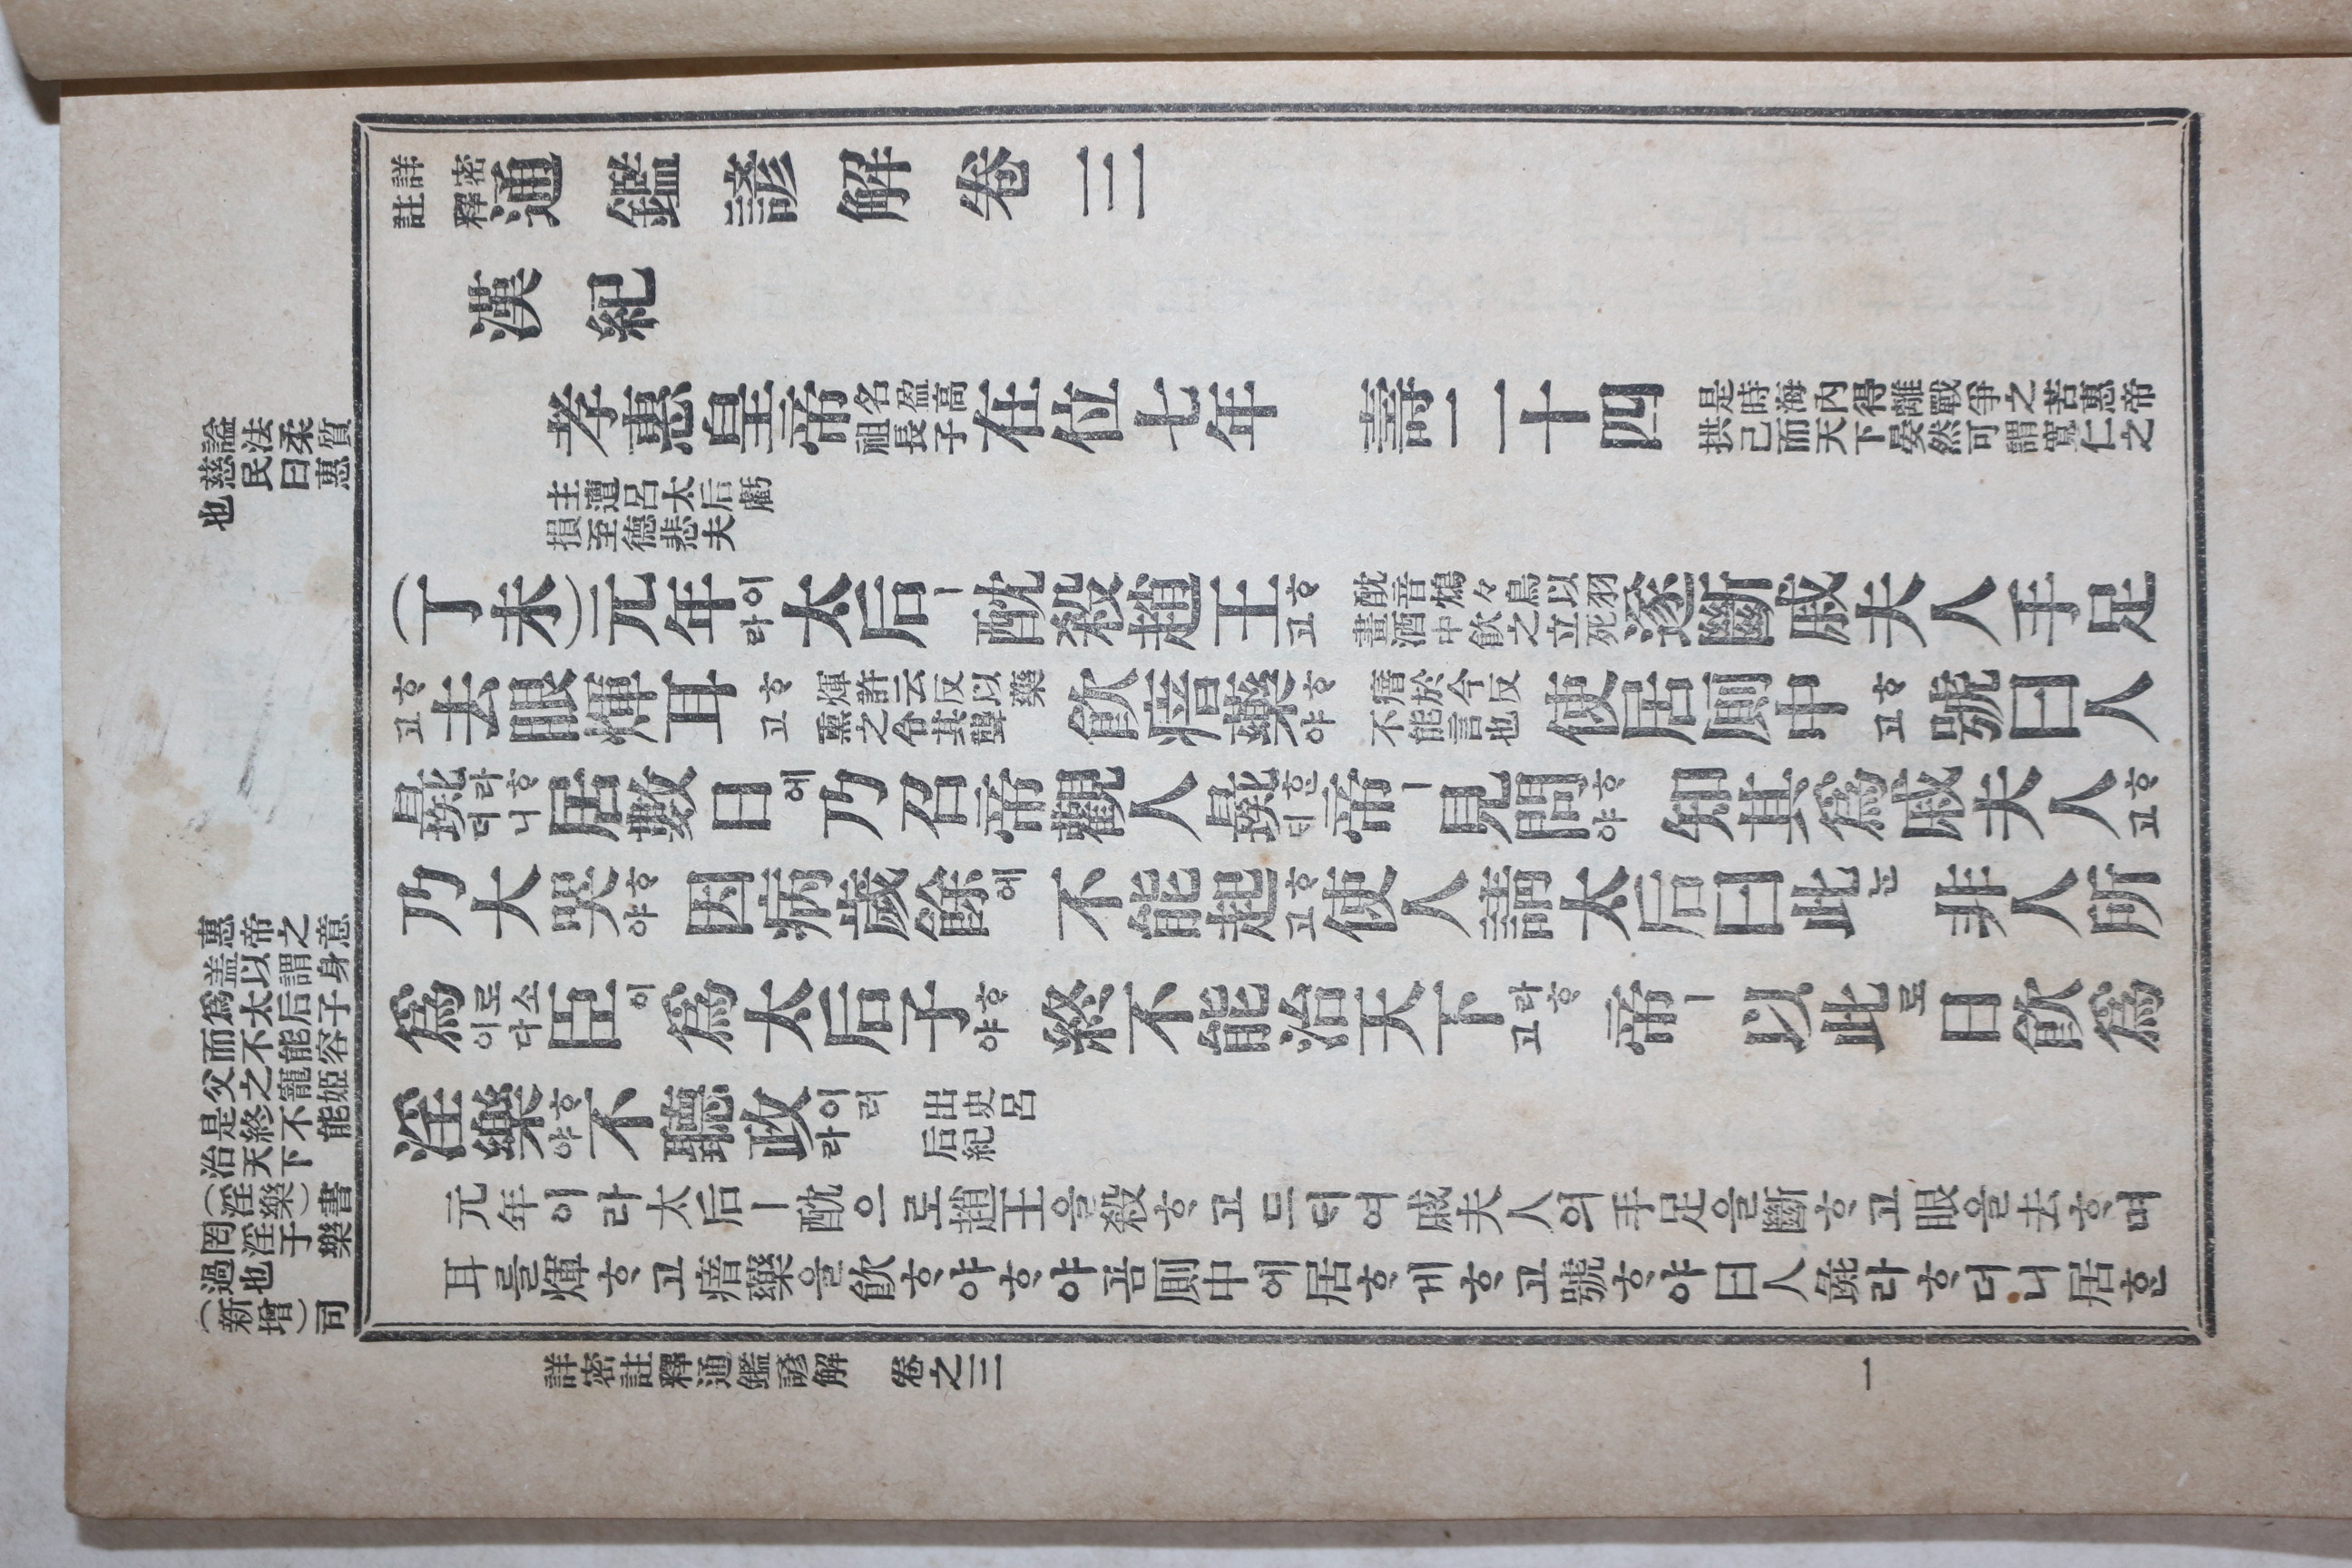 詳密註釋通鑑諺解卷三
漢紀
孝惠皇帝名盈高祖長子在位七年 壽二十四是時海內得離戰爭之苦惠帝拱己而天下晏然可謂寬仁之
主遭呂太后虧損至德悲夫
(丁未)元年이라太后ㅣ酖殺趙王ᄒᆞ고酖音鴆々鳥以羽畫酒中飮之立死遂斷戚夫人手足
ᄒᆞ고去眼煇耳ᄒᆞ고煇許云反以藥熏之令其聾飮瘖藥ᄒᆞ야瘖於今反不能言也使居厠中ᄒᆞ고號曰人
彘라ᄒᆞ더니居數日에乃召帝觀人彘ᄒᆞᆫ디帝ㅣ見問ᄒᆞ야知其爲戚夫人ᄒᆞ고
乃大哭ᄒᆞ야因病歲餘에不能起ᄒᆞ고使人謂太后曰此ᄂᆞᆫ非人所
爲로소이다臣이爲太后子ᄒᆞ야終不能治天下라ᄒᆞ고帝ㅣ以此로日飮爲
淫樂ᄒᆞ야不聽政이러라出史呂后紀
元年이라太后ㅣ酖으로趙王을殺ᄒᆞ고드ᄃᆡ여戚夫人의手足을斷ᄒᆞ고眼을去ᄒᆞ며
耳를煇ᄒᆞ고瘖藥을飮ᄒᆞ야ᄒᆞ야곰厠中에居ᄒᆞ게ᄒᆞ고號ᄒᆞ야曰人彘라ᄒᆞ더니居ᄒᆞᆫ
諡法柔質
慈民曰惠
也
惠帝之意
盖以謂身
爲太后子
而不能容
父之寵姬
是終不能
治天下
(淫樂)書
罔淫于樂
過也
(新增)司
詳密註釋通鑑諺解 卷之三
一